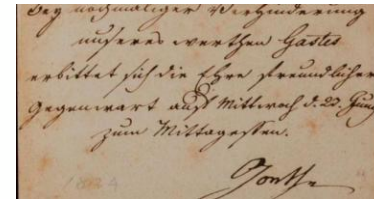 Bey nochmaliger Verhinderung
unseres werthen Gastes
erbittet sich die Ehre freundlicher
Gegenwart auf Mittwoch d. 23. Juny
zum Mittagessen.
Goethe
1824